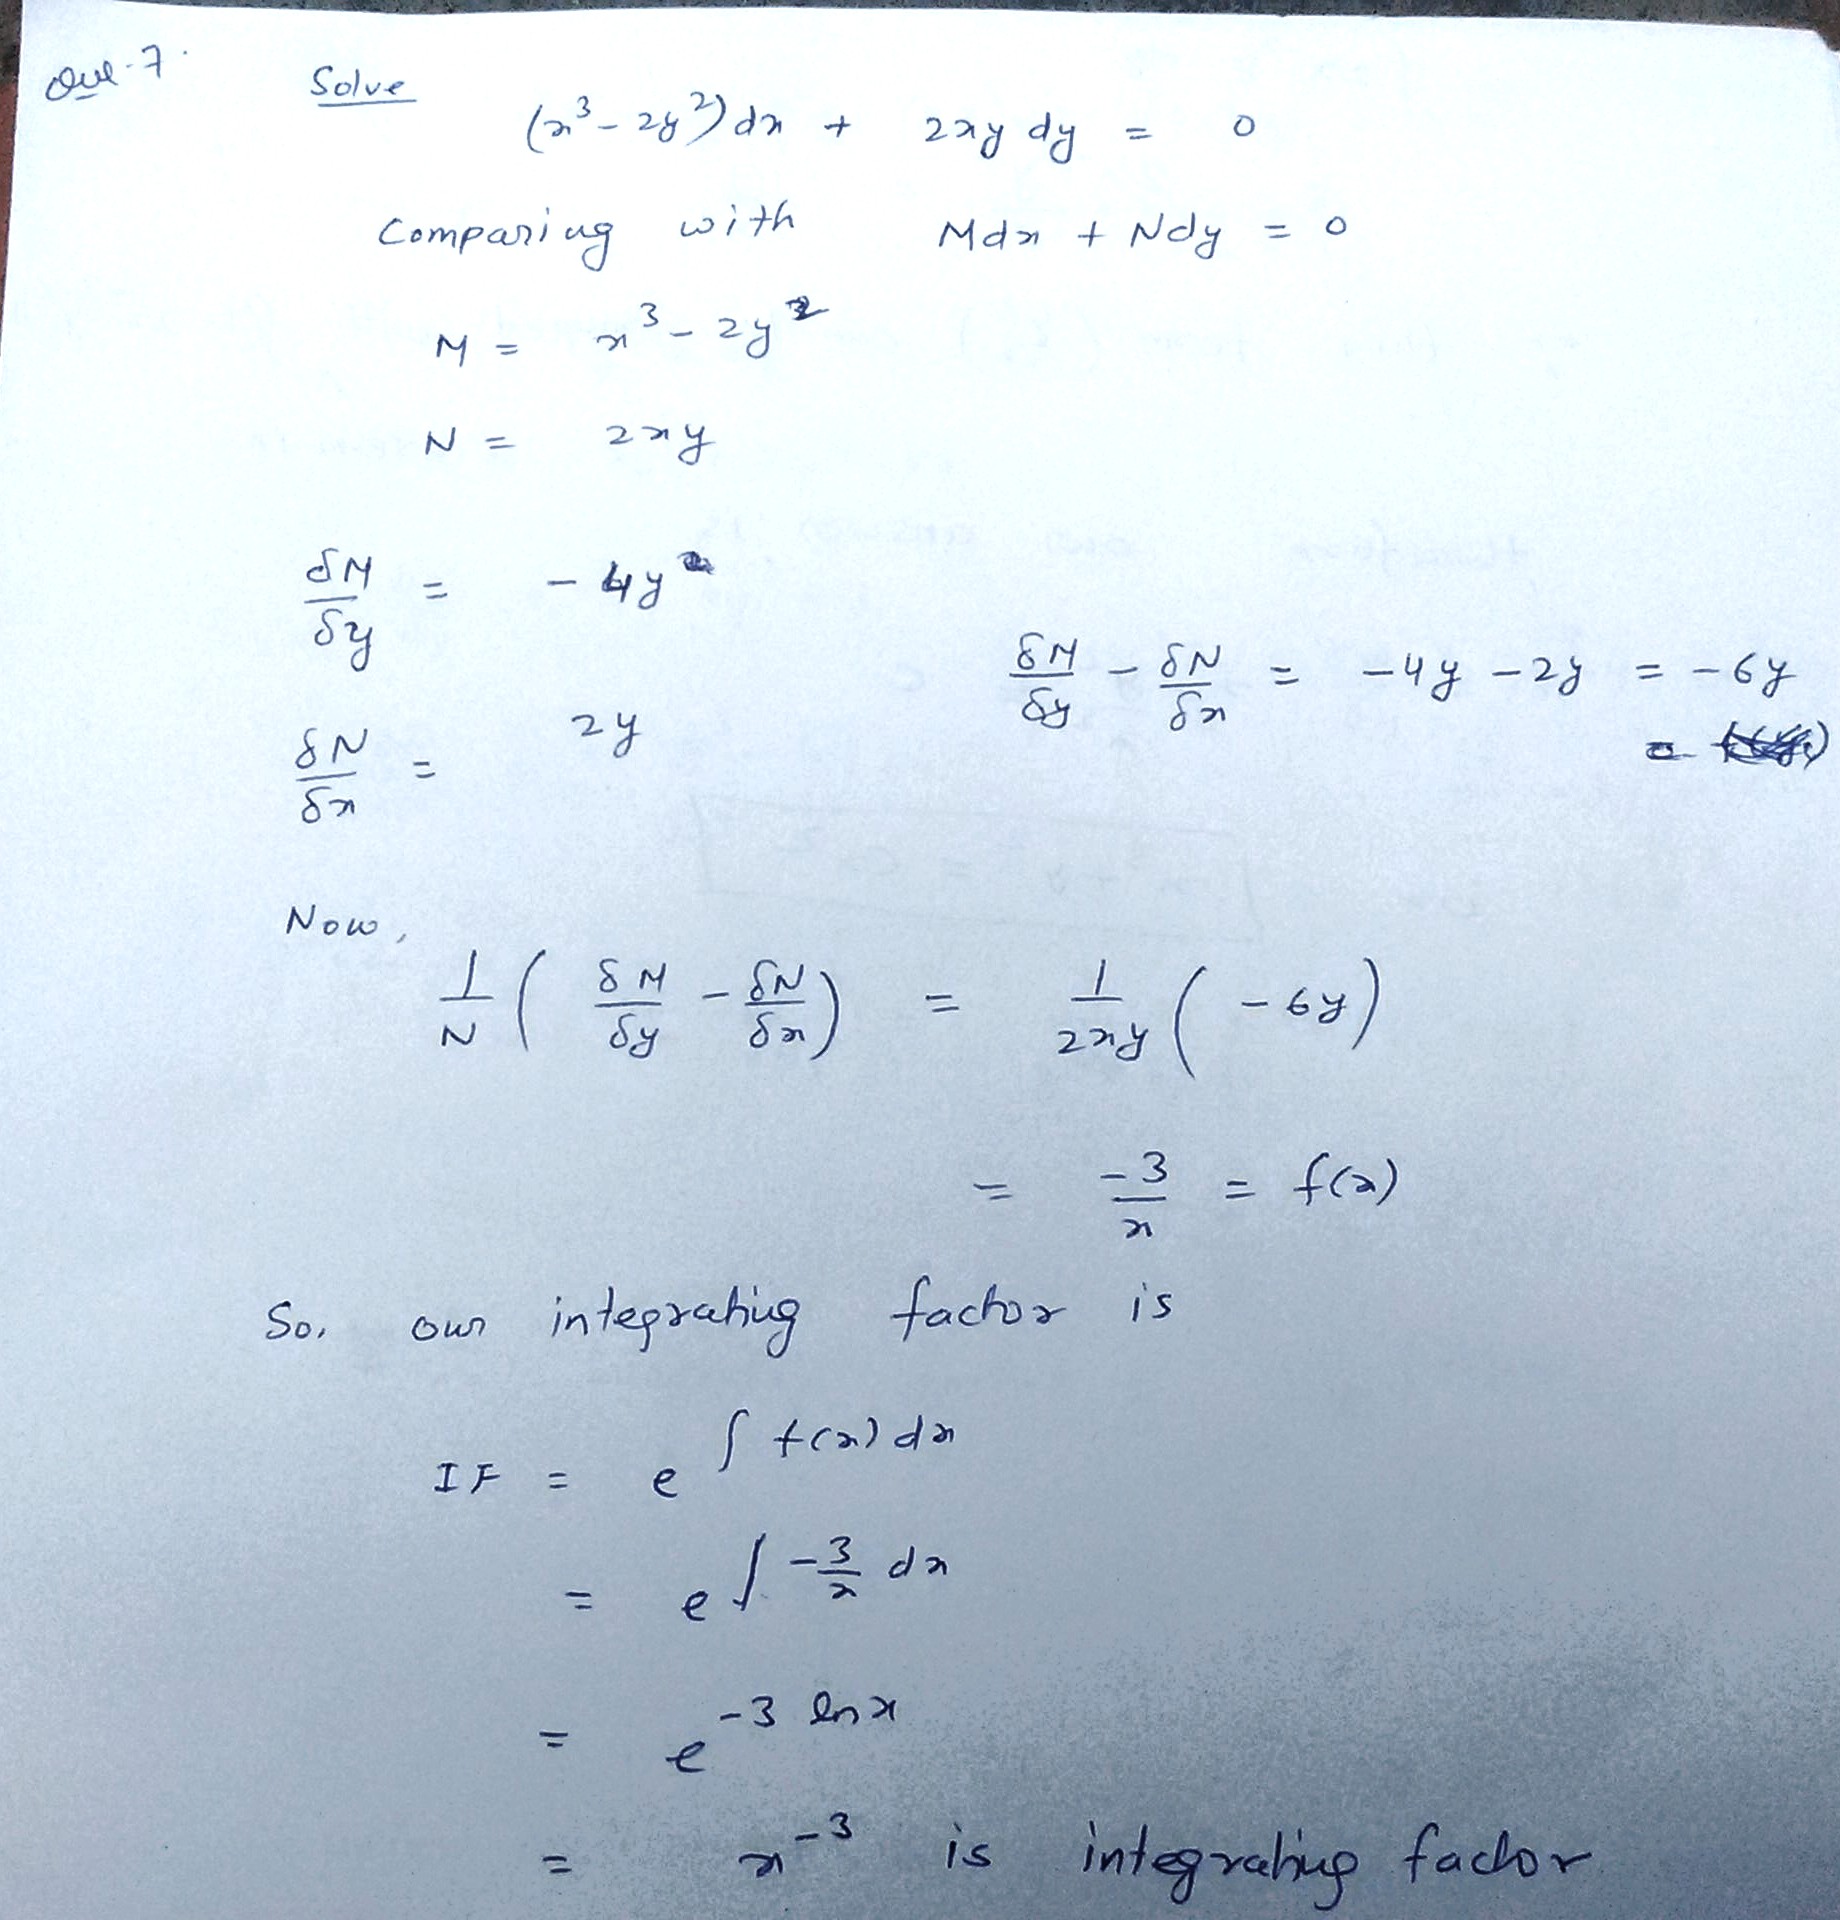 Que-7.
Solve
(x³ - 2y²) dx + 2xy dy = 0
Comparing with Mdx + Ndy = 0
M = x³ - 2y²
N = 2xy
δM/δy = - 4y
δM/δy - δN/δx = -4y - 2y = -6y
δN/δx = 2y
Now,
1/N ( δM/δy - δN/δx ) = 1/2xy ( -6y )
= -3/x = f(x)
So, our integrating factor is
IF = e^∫ f(x) dx
= e^∫ -3/x dx
= e^-3 ln x
= x^-3 is integrating factor